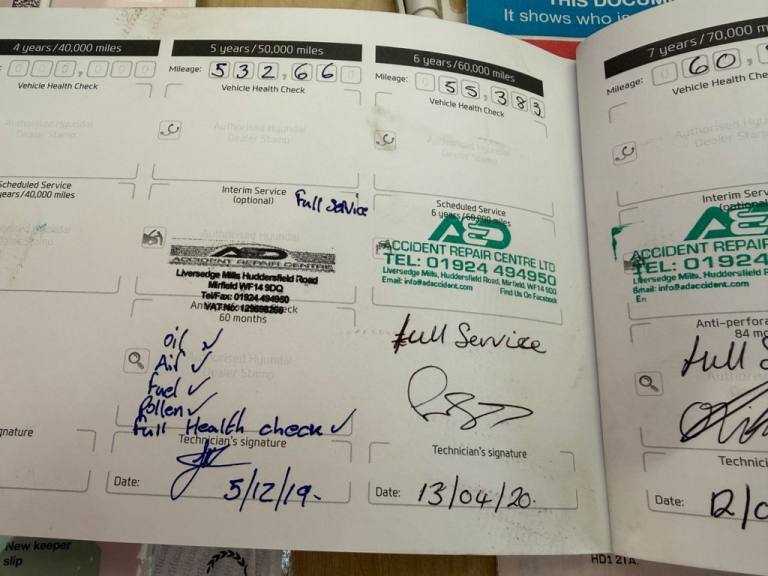 THIS DOCUM
It shows who is
4 years/40,000 miles
0 0 0, 0 0 0
Vehicle Health Check
Authorised Hyundai
Dealer Stamp
Scheduled Service
years/40,000 miles
gnature
New keeper
slip
5 years/50,000 miles
Mileage: 5 3 2, 6 6 0
Vehicle Health Check
Authorised Hyundai
Dealer Stamp
Interim Service
(optional)
Full Service
AED
ACCIDENT REPAIR CENTRE
Liversedge Mills Huddersfield Road
Mirfield WF14 9DQ
Tel/Fax: 01924 494950
VAT No:
60 months
Oil ✓
Air ✓
Fuel ✓
Pollen ✓
Full Health check ✓
Technician's signature
Date: 5/12/19.
6 years/60,000 miles
Mileage: 0 5 5, 3 8 3
Vehicle Health Check
Authorised Hyundai
Dealer Stamp
Scheduled Service
6 years/60,000 miles
AED
ACCIDENT REPAIR CENTRE LTD
TEL: 01924 494950
Liversedge Mills, Huddersfield Road, Mirfield, WF14 9DQ
Email: info@adaccident.com Find Us On Facebook
Full Service
Technician's signature
Date: 13/04/20.
7 years/70,000 m
Mileage: 0 6 0,
Vehicle Health Chec
Interim Serv
(optional
AED
ACCIDENT REPAIR
TEL: 01924
Liversedge Mills, Huddersfield R
Email: info@adaccident.com
Anti-perfora
84 mo
Full S
Technici
Date: 12/0
HD1 2TA.